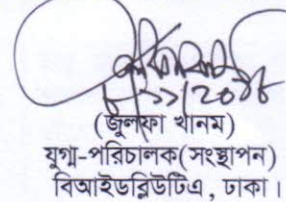 ৮/১১/২০১৮
(জুলফা খানম)
যুগ্ম-পরিচালক(সংস্থাপন)
বিআইডব্লিউটিএ, ঢাকা।